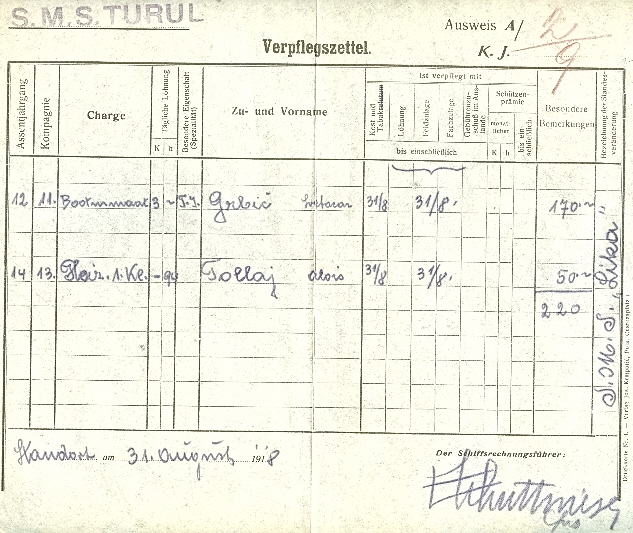 S.M.S. TURUL
Ausweis A/ 2/9
K. J.
Verpflegszettel.
Assentjahrgang
Kompagnie
Charge
Tägliche Löhnung
K h
Besondere Eigenschaft (Spezialität)
Zu- und Vorname
ist verpflegt mit
Kost und Tabak
Löhnung
Feldzulage
Fachzulage
Gebührenzuschuß im Auslande
Schützenprämie
monatlicher
K h
bis einschließlich
bis einschließlich
Besondere Bemerkungen
Bezeichnung der Standesveränderung
12 11. Bootsmaat 3 ~ T.J. Grbić 31/8 31/8. 170 ~
14 13. 1. Kl. - 90 Tollaj Alois 31/8 31/8. 50 ~
220
S.M.S. „Lika"
Standort am 31. August 1918
Der Schiffsrechnungsführer: